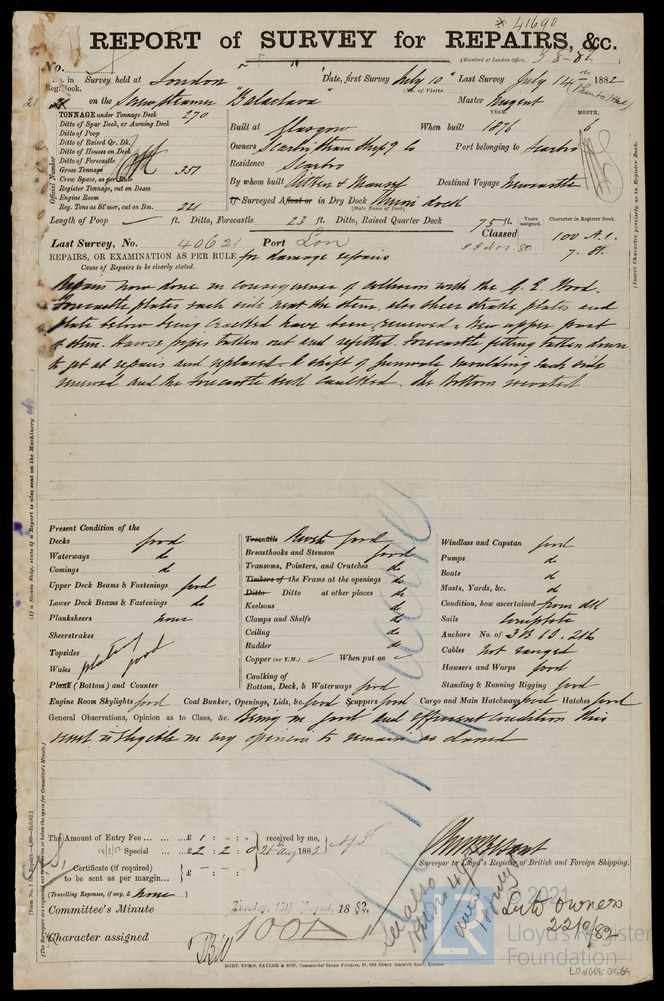 * 41690
REPORT of SURVEY for REPAIRS, &c.
(Received at London Office, 5-8-82
No.
No. in Survey held at London Date, first Survey July 10th Last Survey July 14th 1882
Reg. Book. (No. of Visits
21 on the Screw steamer "Balaclava" Master Nugent
TONNAGE under Tonnage Deck 270
Ditto of Spar Deck, or Awning Deck
Ditto of Poop
Ditto of Raised Qr. Dk.
Ditto of Houses on Deck
Ditto of Forecastle
Gross Tonnage 357
Crew Space, as per Rule
Register Tonnage, cut on Beam
Engine Room
Reg. Tons as St'mer, cut on Bm. 221
Official Number
YEAR. MONTH.
Built at Glasgow When built 1876 6
Owners Scarbro Steam Shipg Co Port belonging to Scarbro
Residence Scarbro
By whom built Aitken & Mansel Destined Voyage Newcastle
If Surveyed Afloat or in Dry Dock
(State Name of Dock)
Length of Poop — ft. Ditto, Forecastle 23 ft. Ditto, Raised Quarter Deck 75 ft.
Years assigned. Character in Register Book.
Last Survey, No. 40621 Port Lon Classed 100 A.1.
7. 81.
REPAIRS, OR EXAMINATION AS PER RULE for damage repairs
Cause of Repairs to be clearly stated.
Repairs now done in consequence of collision with the G. E. Wood.
Forecastle plates each side next the stem, also sheer strake plates and
plate below being cracked have been renewed. New upper part
of stem. Hawse pipes taken out and refitted. Forecastle fitting taken down
to get at repairs and replaced. A shift of gunwale moulding each side
renewed and the forecastle deck caulked. The bottom recoated
(Insert Character precisely as in Register Book.
(If a Steam Ship, state if a Report is also sent on the Machinery
Present Condition of the
Decks good
Waterways do
Comings do
Upper Deck Beams & Fastenings good
Lower Deck Beams & Fastenings do
Planksheers none
Sheerstrakes
Topsides
Wales plated good
Plank (Bottom) and Counter
Treenails Rivets good
Breasthooks and Stemson good
Transoms, Pointers, and Crutches do
Timbers of the Frame at the openings do
Ditto Ditto at other places do
Keelsons do
Clamps and Shelfs do
Ceiling do
Rudder do
Copper (or Y.M.) ✓ When put on ✓
Caulking of
Bottom, Deck, & Waterways good
Windlass and Capstan good
Pumps do
Boats do
Masts, Yards, &c. do
Condition, how ascertained from dk
Sails complete
Anchors No. of 3 B 1 S. 2 K
Cables not ranged
Hawsers and Warps good
Standing & Running Rigging good
Engine Room Skylights good Coal Bunker, Openings, Lids, &c. good Scuppers good Cargo and Main Hatchways good Hatches good
General Observations, Opinion as to Class, &c. Being in good and efficient condition this
vessel is eligible in my opinion to remain as classed
The Amount of Entry Fee ... ... ... £ 1 : - : -
Special ... £ 2 : 2 : 0
received by me,
21st Aug 1882
Certificate (if required)
to be sent as per margin... £ - : - : -
(Travelling Expenses, if any, £ none )
Surveyor to Lloyd's Register of British and Foreign Shipping.
Committee's Minute Tuesday, 15th August, 1882.
Character assigned 100A
See also
Lr to owners
22/9/82
© 2021
Lloyd's Register
Foundation
ROBT. EDMD. TAYLOR & SON, Commercial Steam Printers, 19, Old Street, Goswell Road, London.
LON668-0569